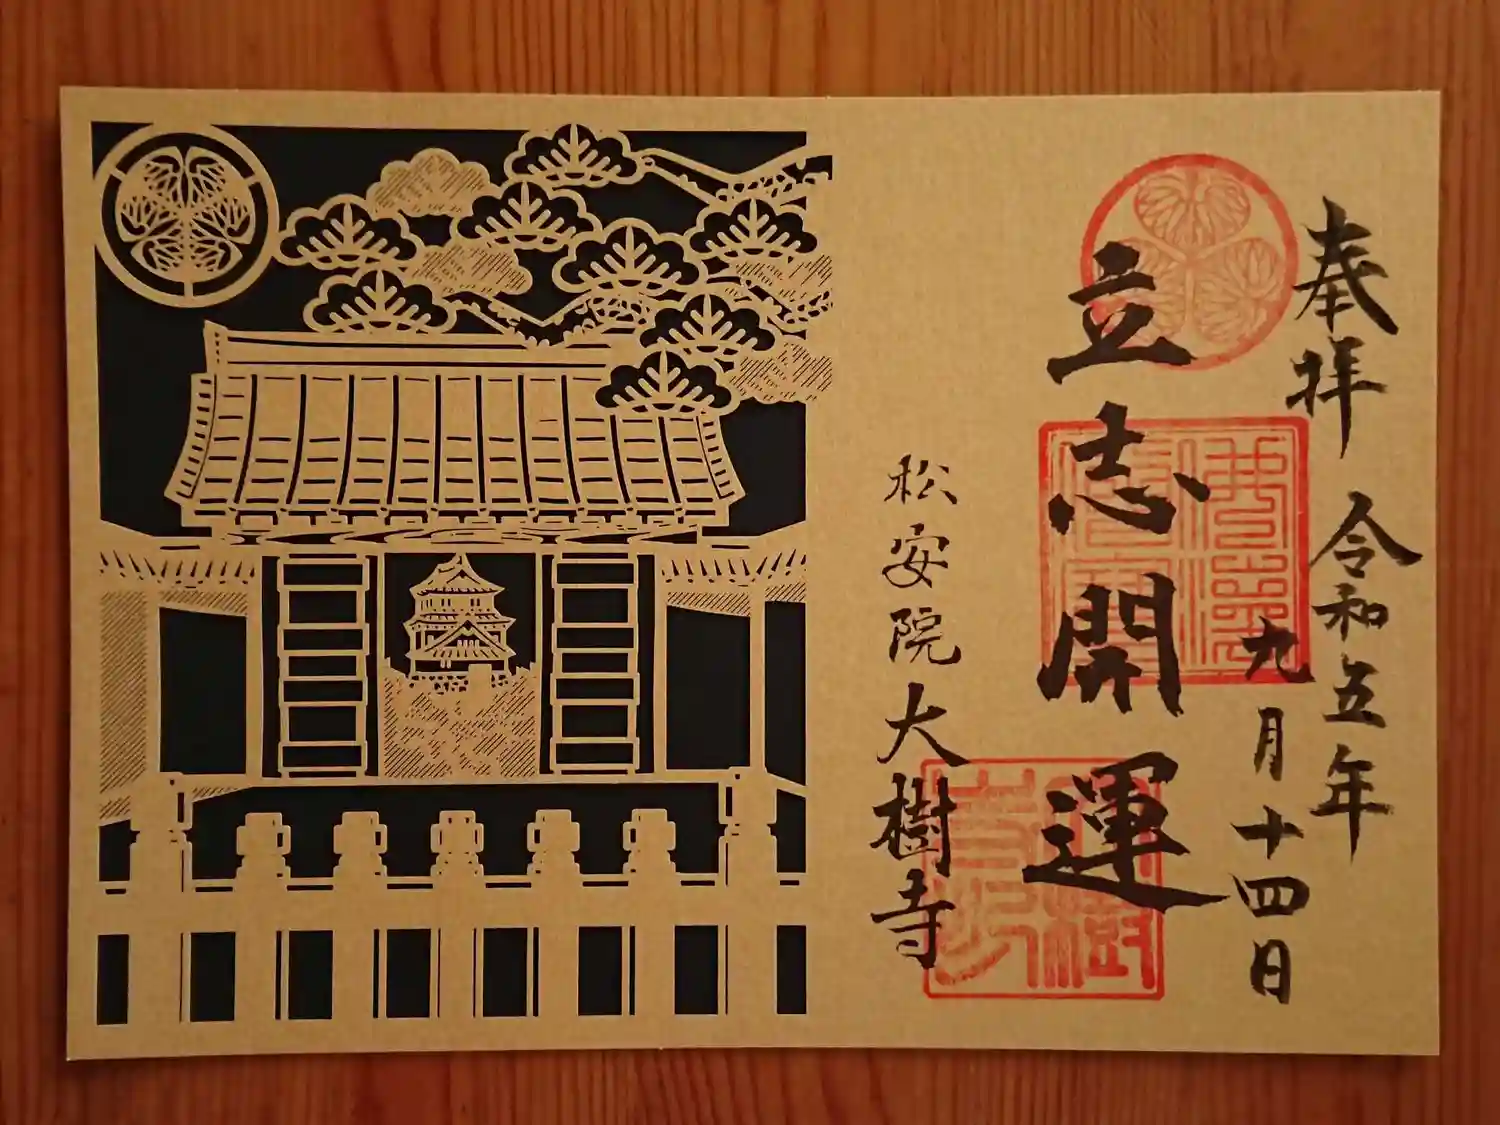 奉拝 令和五年
九月十四日
立志開運
松安院大樹寺